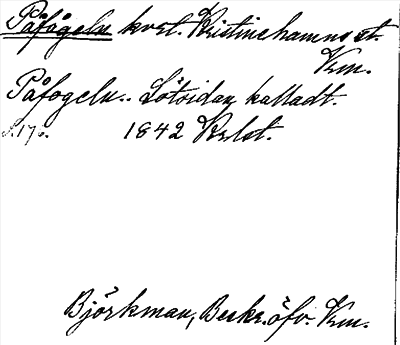 Påfågeln kvst. Kristinehamns st.
Vrm.
Påfogeln.. Sötsidan kalladt.
S. 176. 1842 Krlst.
Björkman, Beskr. öfv. Vrm.